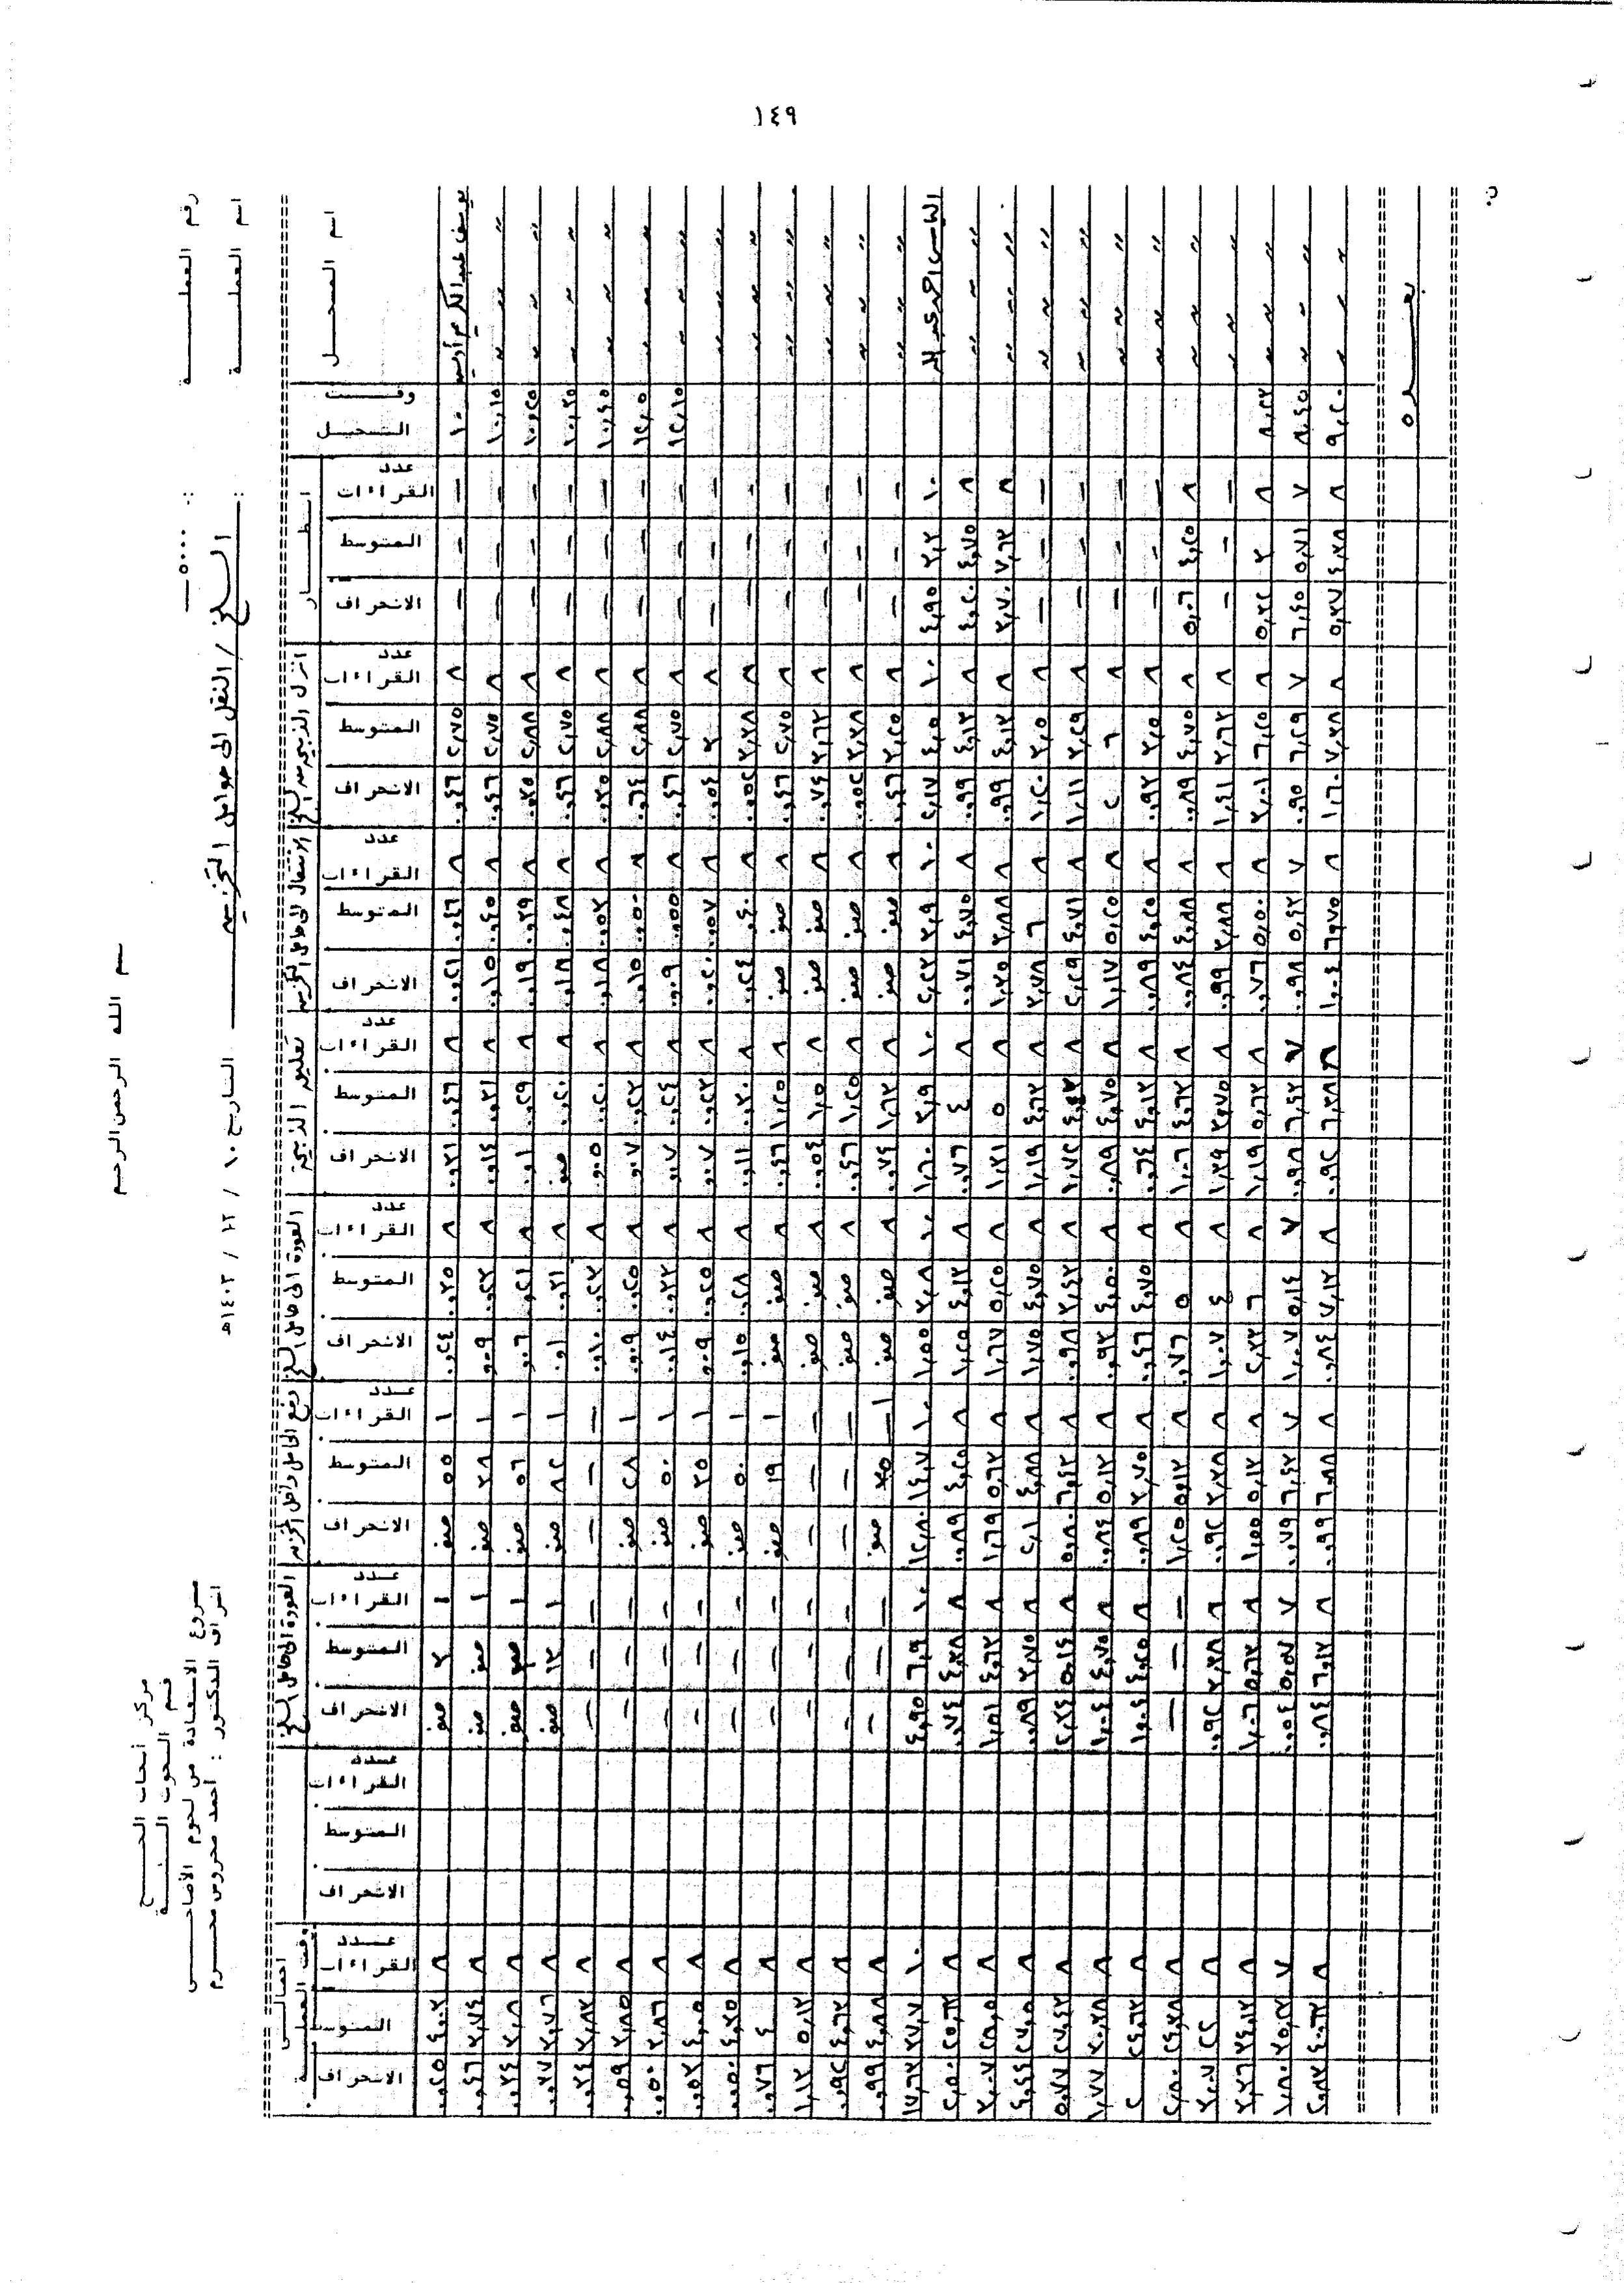 ١٤٩
بسم الله الرحمن الرحيم
مركز أبحاث الحج
قسم البحوث البيئية
مشروع الاستفادة من لحوم الأضاحي
اشراف الدكتور : أحمد محروس محرم
رقم العملية : ٥٠٠٠
اسم العملية : السلخ / النقل الى حوامل التخزين
التاريخ ١٠ / ١٢ / ١٤٠٣هـ
اسم المسجل | وقت التسجيل | انتظار | انزال الذبيحه من السلخ | الانتقال الى حامل التخزين | تعليق الذبيحة | العودة الى حامل السلخ | دفع الحامل داخل المخزن | العودة الى حامل السلخ | اجمالي وقت العملية
عدد القراءات المتوسط الانحراف
يوسف عبد الكريم أدريس ١٠ – – – ٨ ٢,٧٥ ٠,٤٦ ٨ ٠,٤٦ ٠,٢١ ٨ ٠,٤٦ ٠,٢١ ٨ ٠,٣٥ ٠,٢٤ ١ ٥٥ صفر ١ ٣ صفر ٨ ٤,٠٢ ٠,٢٥
〃 〃 〃 ١٠,١٥ – – – ٨ ٢,٧٥ ٠,٤٦ ٨ ٠,٤٥ ٠,١٥ ٨ ٠,٢١ ٠,١٤ ٨ ٠,٢٣ ٠,٠٩ ١ ٣٨ صفر ١ صفر صفر ٨ ٣,٧٤ ٠,٤٦
〃 〃 〃 ١٠,٢٥ – – – ٨ ٢,٨٨ ٠,٣٥ ٨ ٠,٣٩ ٠,١٩ ٨ ٠,٢٩ ٠,١ ٨ ٠,٢١ ٠,٠٦ ١ ٥٦ صفر ١ صفر صفر ٨ ٣,٨ ٠,٣٤
〃 〃 〃 ١٠,٣٥ – – – ٨ ٢,٧٥ ٠,٤٦ ٨ ٠,٤٨ ٠,١٨ ٨ ٠,٢٠ صفر ٨ ٠,٢١ ٠,١ ١ ٨٢ صفر ١ ١٣ صفر ٨ ٣,٧٦ ٠,٧٧
〃 〃 〃 ١٠,٤٥ – – – ٨ ٢,٨٨ ٠,٣٥ ٨ ٠,٥٣ ٠,١٨ ٨ ٠,٢٠ ٠,٠٥ ٨ ٠,٢٣ ٠,١٠ – – – – – – ٨ ٣,٨٣ ٠,٣٤
〃 〃 〃 ١٢,٠٥ – – – ٨ ٢,٨٨ ٠,٦٤ ٨ ٠,٥٠ ٠,١٥ ٨ ٠,٢٣ ٠,٠٧ ٨ ٠,٢٥ ٠,٠٩ ١ ٢٨ صفر – – – ٨ ٣,٨٥ ٠,٥٩
〃 〃 〃 ١٢,١٥ – – – ٨ ٢,٧٥ ٠,٤٦ ٨ ٠,٥٥ ٠,٠٩ ٨ ٠,٢٤ ٠,٠٧ ٨ ٠,٢٢ ٠,١٤ ١ ٥٠ صفر – – – ٨ ٣,٨٦ ٠,٥٠
〃 〃 – – – ٨ ٣ ٠,٥٤ ٨ ٠,٥٧ ٠,٢٠ ٨ ٠,٢٣ ٠,٠٧ ٨ ٠,٢٥ ٠,٠٩ ١ ٣٥ صفر – – – ٨ ٤,٠٥ ٠,٥٣
〃 〃 – – – ٨ ٣,٣٨ ٠,٥٢ ٨ ٠,٦٠ ٠,٢٤ ٨ ٠,٣٠ ٠,١١ ٨ ٠,٢٨ ٠,١٥ ١ ٥٠ صفر – – – ٨ ٤,٣٥ ٠,٥٠
〃 〃 – – – ٨ ٢,٧٥ ٠,٤٦ ٨ صفر صفر ٨ ١,٢٥ ٠,٤٦ ٨ صفر صفر ١ ١٩ صفر – – – ٨ ٤ ٠,٧٦
〃 〃 – – – ٨ ٣,٦٢ ٠,٧٤ ٨ صفر صفر ٨ ١,٥ ٠,٥٤ ٨ صفر صفر – – – – – – ٨ ٥,١٢ ١,١٢
〃 〃 – – – ٨ ٣,٣٨ ٠,٥٢ ٨ صفر صفر ٨ ١,٢٥ ٠,٤٦ ٨ صفر صفر – – – – – – ٨ ٤,٦٢ ٠,٩٢
〃 〃 – – – ٨ ٣,٢٥ ٠,٤٦ ٨ صفر صفر ٨ ١,٦٢ ٠,٧٤ ٨ صفر صفر ١ ٣٥ صفر – – – ٨ ٤,٨٨ ٠,٩٩
الياس احمد عبد الله ١٠ ٣,٢ ٤,٩٥ ١٠ ٤,٥ ٢,١٧ ١٠ ٣,٩ ٢,٢٣ ١٠ ٣,٩ ١,٦٠ ١٠ ٣,٨ ١,٥٥ ١٠ ١٤,٧ ١٢,٨٠ ١٠ ٦,٩ ٤,٩٥ ١٠ ٣٧,٧ ١٧,٦٣
〃 〃 ٨ ٤,٧٥ ٤,٢٠ ٨ ٤,١٣ ٠,٩٩ ٨ ٤,٧٥ ٠,٧١ ٨ ٤ ٠,٧٦ ٨ ٤,١٢ ١,٢٥ ٨ ٤,٢٥ ٠,٨٩ ٨ ٤,٣٨ ٠,٧٤ ٨ ٢٥,٦٣ ٢,٥٠
〃 〃 ٨ ٧,٦٢ ٣,٧٠ ٨ ٤,١٣ ٠,٩٩ ٨ ٣,٨٨ ١,٢٥ ٨ ٥ ١,٣١ ٨ ٥,٢٥ ١,٦٧ ٨ ٥,٦٢ ١,٦٩ ٨ ٤,٦٢ ١,٥١ ٨ ٢٨,٥ ٣,٠٧
〃 〃 – – – ٨ ٣,٥ ١,٢٠ ٨ ٦ ٢,٧٨ ٨ ٤,٦٢ ١,١٩ ٨ ٤,٧٥ ١,٧٥ ٨ ٤,٨٨ ٢,١ ٨ ٣,٧٥ ٠,٨٩ ٨ ٢٧,٥ ٤,٤٤
〃 〃 – – – ٨ ٣,٢٩ ١,١١ ٨ ٤,٧١ ٢,٢٩ ٨ ١,٧٢ ٨ ٣,٤٣ ٠,٩٨ ٨ ٦,٤٣ ٥,٨٠ ٨ ٥,١٤ ٢,٣٤ ٨ ٢٧,٤٣ ٥,٧٧
〃 〃 – – – ٨ ٦ ٢ ٨ ٥,٢٥ ١,١٧ ٨ ٤,٧٥ ٠,٨٩ ٨ ٤,٥٠ ٠,٩٣ ٨ ٥,١٢ ٠,٨٤ ٨ ٤,٧٥ ١,٠٤ ٨ ٣٠,٣٨ ١,٧٧
〃 〃 – – – ٨ ٣,٥ ٠,٩٣ ٨ ٤,٢٥ ٠,٨٩ ٨ ٤,١٣ ٠,٦٤ ٨ ٤,٧٥ ٠,٤٦ ٨ ٣,٧٥ ٠,٨٩ ٨ ٤,٢٥ ١,٠٤ ٨ ٢٤,٦٢ ٢
〃 〃 ٨ ٤,٢٥ ٥,٠٦ ٨ ٤,٧٥ ٠,٨٩ ٨ ٤,٨٨ ٠,٨٤ ٨ ٤,٦٣ ١,٠٦ ٨ ٥ ٠,٧٦ ٨ ٥,١٢ ١,٢٥ – – – ٨ ٢٤,٣٨ ٢,٨٠
〃 〃 – – – ٨ ٣,٦٢ ١,٤١ ٨ ٣,٨٨ ٠,٩٩ ٨ ٣,٧٥ ١,٣٩ ٨ ٤ ١,٠٧ ٨ ٣,٣٨ ٠,٩٢ ٨ ٣,٣٨ ٠,٩٢ ٨ ٢٢ ٣,٠٧
〃 〃 ٨,٣٢ ٨ ٣ ٥,٣٢ ٨ ٦,٢٥ ٣,٠١ ٨ ٥,٥٠ ٠,٧٦ ٨ ٥,٦٣ ١,١٩ ٨ ٦ ٢,٣٣ ٨ ٥,١٢ ١,٥٥ ٨ ٥,٦٣ ١,٠٦ ٨ ٣٤,١٣ ٣,٣٦
〃 – 〃 ٨,٤٥ ٧ ٥,٧١ ٦,٤٥ ٧ ٦,٢٩ ٠,٩٥ ٧ ٥,٤٣ ٠,٩٨ ٧ ٦,٤٣ ٠,٩٨ ٧ ٥,١٤ ١,٠٧ ٧ ٦,٤٣ ٠,٧٩ ٧ ٥,٥٧ ٠,٥٤ ٧ ٣٥,٣٧ ١,٨٠
〃 〃 ٩,٢٠ ٨ ٤,٣٨ ٥,٣٧ ٨ ٧,٣٨ ١,٦٠ ٨ ٦,٧٥ ١,٠٤ ٨ ٦,٣٨ ٠,٩٢ ٨ ٧,١٢ ٠,٨٤ ٨ ٦,٨٨ ٠,٩٩ ٨ ٦,١٣ ٠,٨٤ ٨ ٤٠,٦٣ ٢,٨٣
بعده